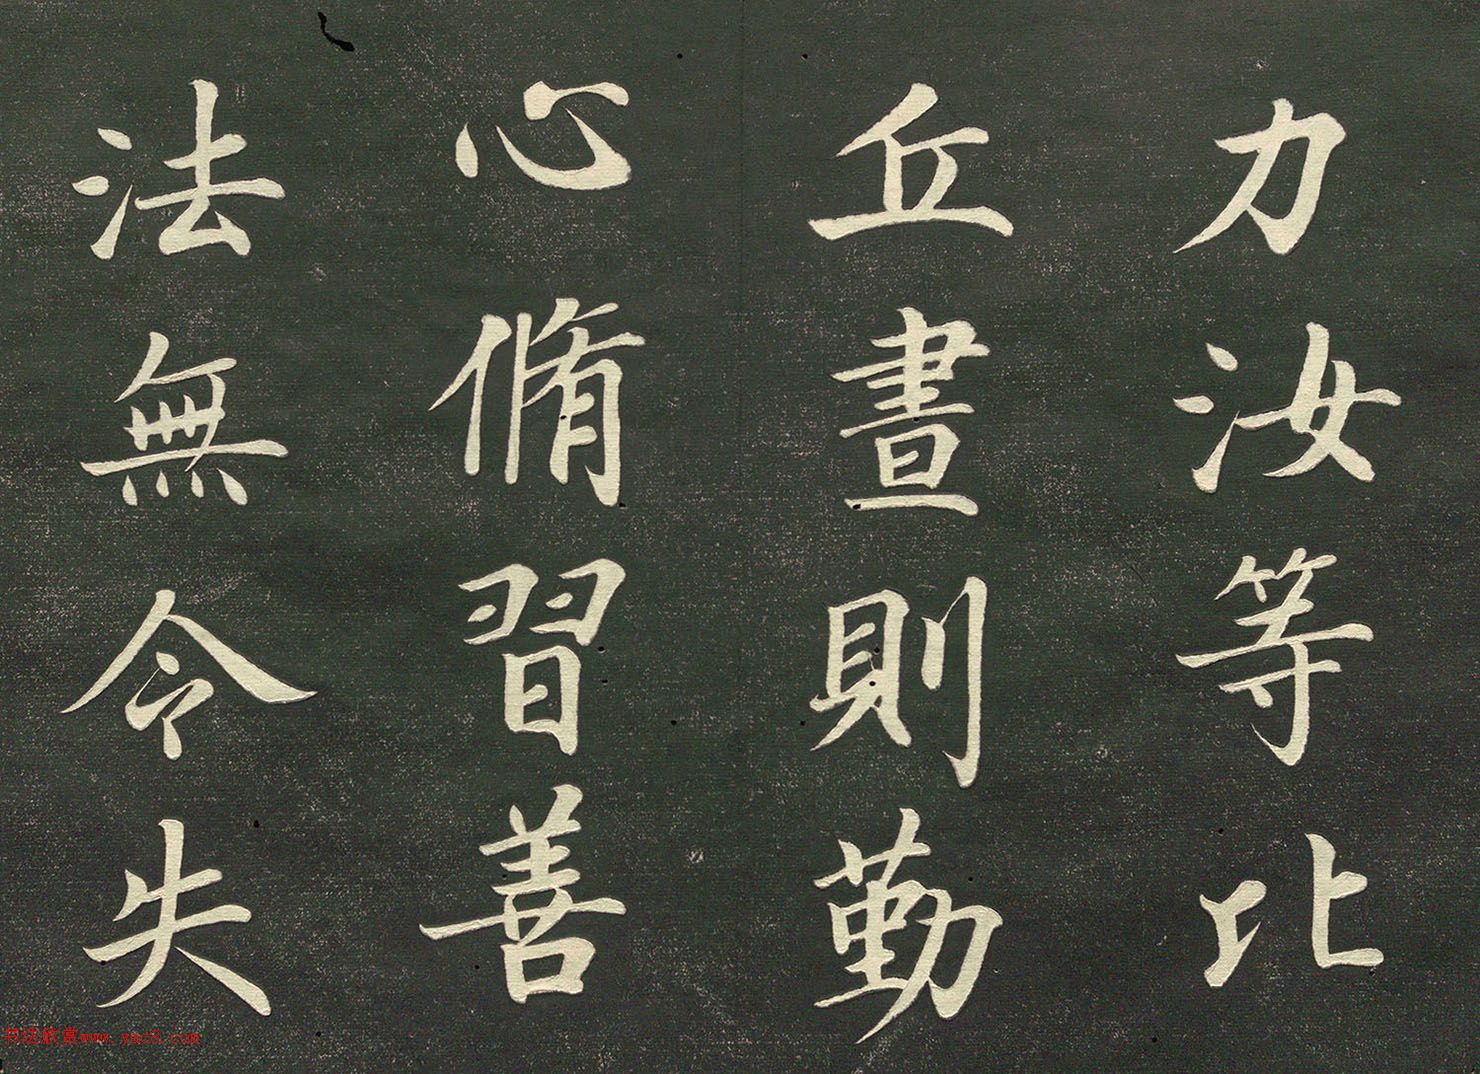 力汝等比
丘晝則勤
心脩習善
法無令失
书法欣赏www.yac8.com